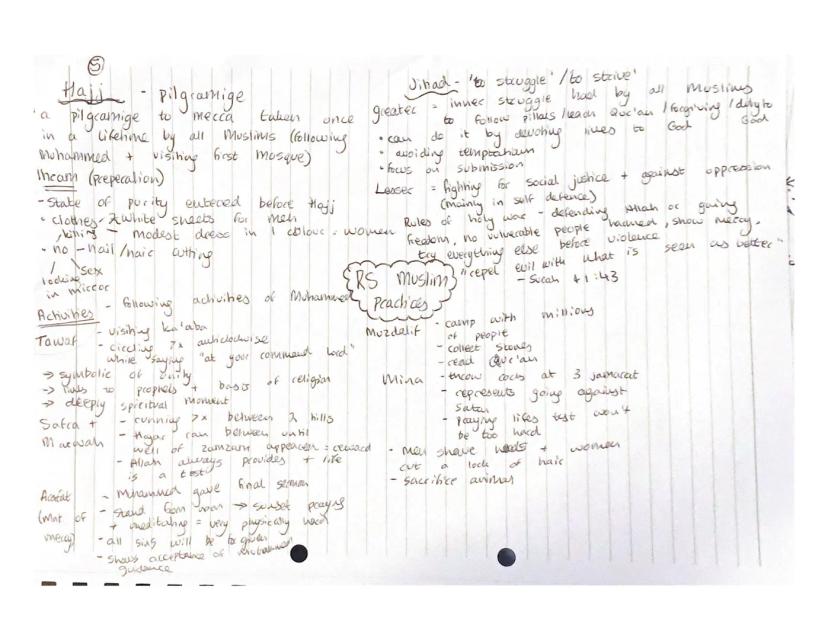 5
Hajj - pilgramige
"a pilgramige to mecca taken once
in a lifetime by all Muslims (following
Muhammed + visiting first mosque)
Ihram (preperation)
- State of purity entered before Hajj
• clothes - 2 white sheets for men
- modest dress in 1 colour = women
• no - nail/hair cutting
looking in mirror
sex
Activities - following activities of Muhammed
Tawaf - visiting ka'aba
- circling 7x anticlockwise
while saying "at your command lord"
-> symbolic of unity
-> links to prophets + basis of religion
-> deeply spiritual moment
Safra + Marwah - running 7x between 2 hills
- Hagar ran between until
well of zamzam appeared = reward
- Allah always provides + life
is a test
Arafat (Mnt of mercy) - Muhammed gave final sermon
- stand from noon -> sunset praying
+ meditating = very physically hard
- all sins will be forgiven
- shows acceptance of
guidance
RS Muslim
Practices
Jihad - 'to struggle' / to strive'
greater = inner struggle had by all Muslims
to follow pillars/learn Qur'an/forgiving/duty to
God
• can do it by devoting lives to God
• avoiding temptation
• focus on submission
Lesser = fighting for social justice + against oppression
(mainly in self defence)
Rules of holy war - defending Allah or going
freedom, no vulnerable people harmed, show mercy,
try everything else before violence
"repel evil with what is seen as better"
- Surah 41:43
Muzdalif - camp with millions
of people
- collect stones
- read Qur'an
Mina - throw rocks at 3 jamarat
- represents going against
Satan
- praying lifes test won't
be too hard
- Men shave heads + women
cut a lock of hair
- sacrifice animal